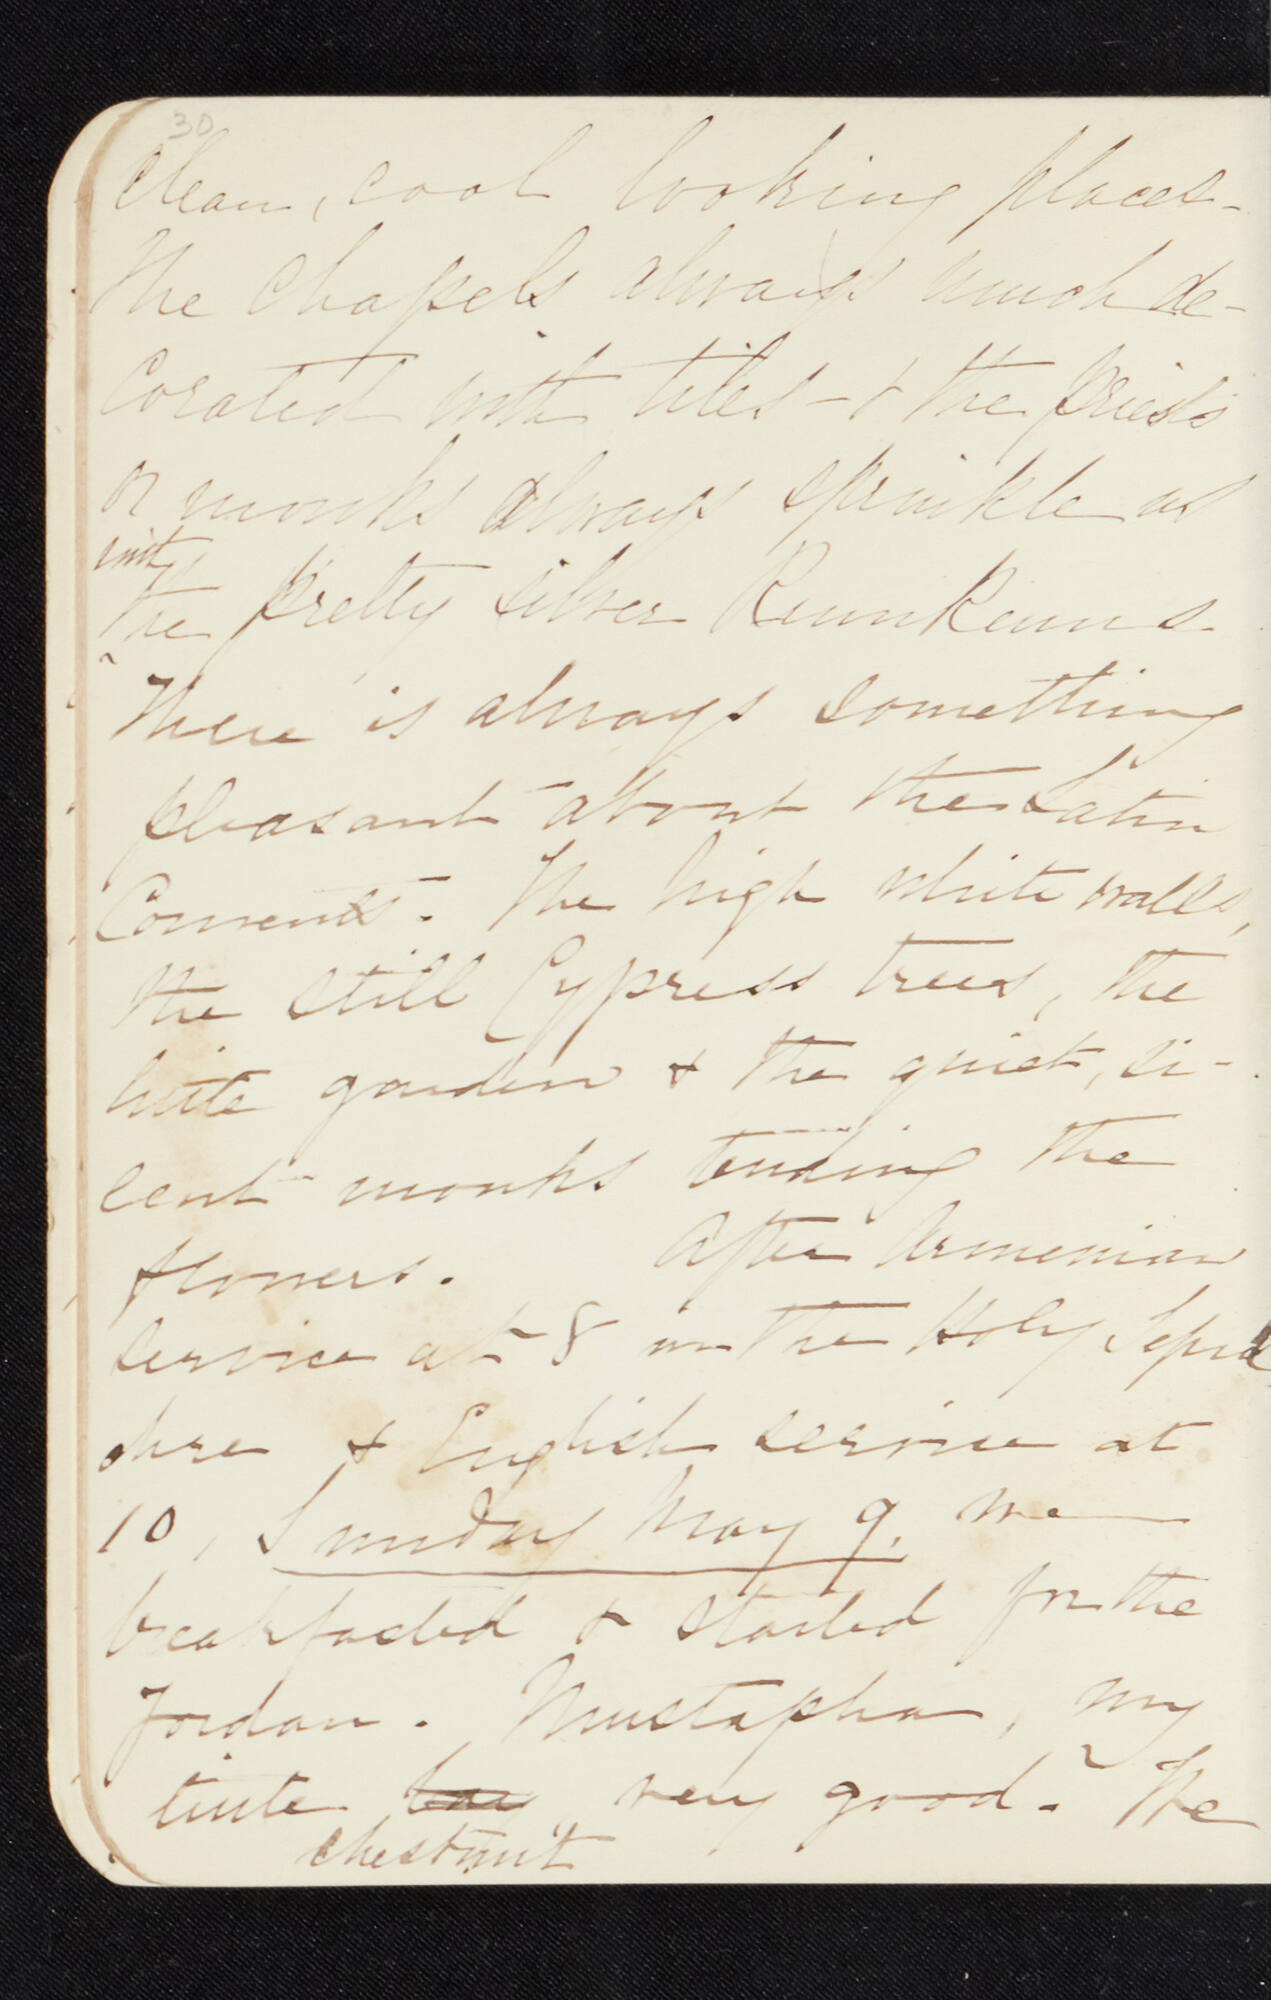 30
clean, cool looking places -
The chapels always much de-
corated with tiles - & the priests
or monks always sprinkle us
with
the pretty silver KumKums
There is always something
pleasant about the Latin
Convents. The high white walls,
the still Cypress trees, the
little garden & the quiet, si-
lent monks tending the
flowers. After Armenian
service at 8 in the Holy Sepul
chre & English service at
10, Sunday May 9, we
breakfasted & started for the
Jordan. Mustapha, my
little bay very good. The
chestnut